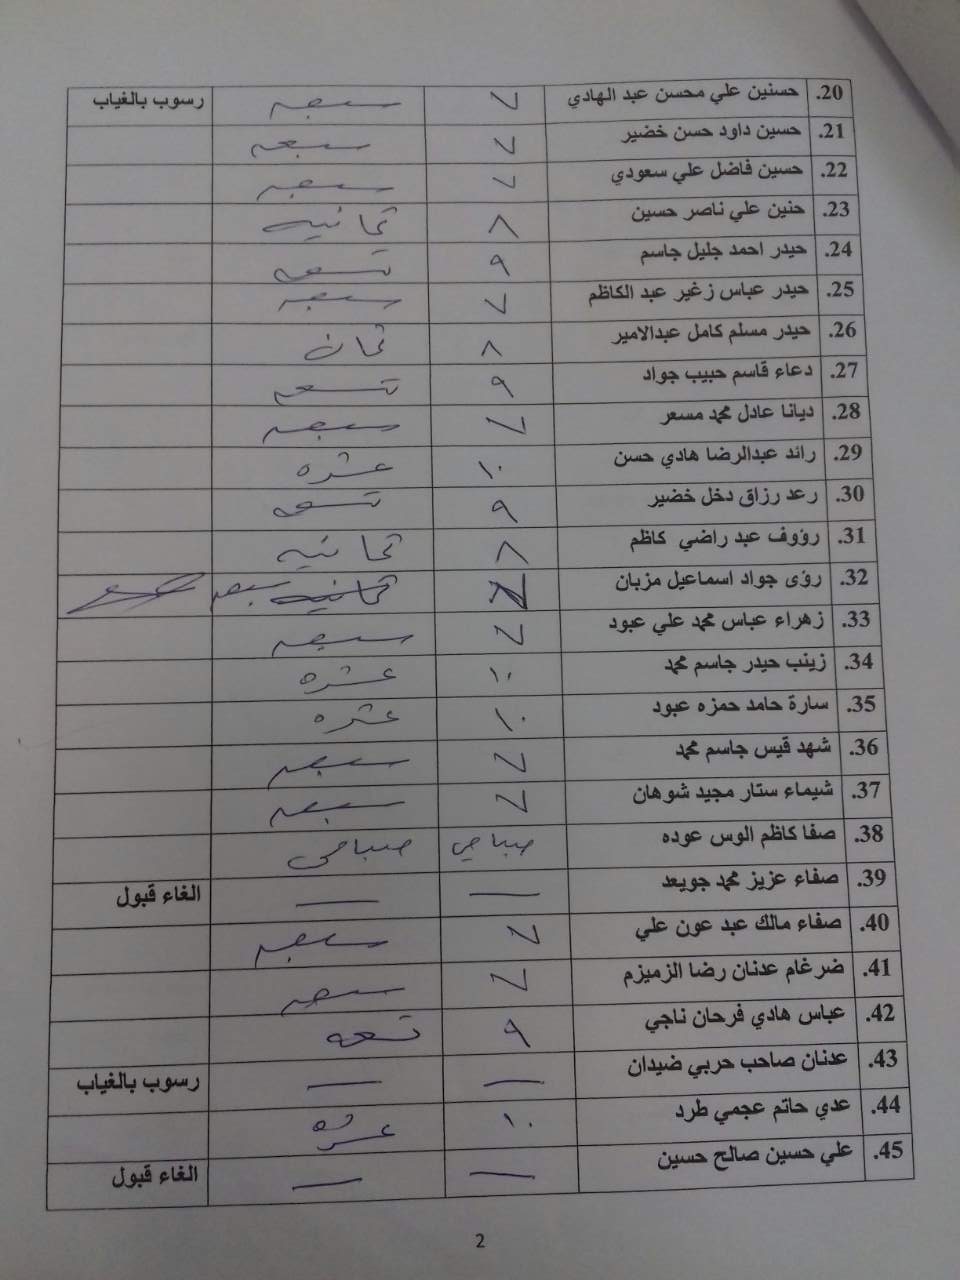 20. حسنين علي محسن عبد الهادي ٧ سبعه رسوب بالغياب
21. حسين داود حسن خضير ٧ سبعه
22. حسين فاضل علي سعودي ٧ سبعه
23. حنين علي ناصر حسين ٨ ثمانيه
24. حيدر احمد جليل جاسم ٩ تسعه
25. حيدر عباس زغير عبد الكاظم ٧ سبعه
26. حيدر مسلم كامل عبدالامير ٨ ثمان
27. دعاء قاسم حبيب جواد ٩ تسعه
28. ديانا عادل محمد مسعر ٧ سبعه
29. رائد عبدالرضا هادي حسن ١٠ عشره
30. رعد رزاق دخل خضير ٩ تسعه
31. رؤوف عبد راضي كاظم ٨ ثمانيه
32. رؤى جواد اسماعيل مزبان ٧ ثمانيه سبعه
33. زهراء عباس محمد علي عبود ٧ سبعه
34. زينب حيدر جاسم محمد ١٠ عشره
35. سارة حامد حمزه عبود ١٠ عشره
36. شهد قيس جاسم محمد ٧ سبعه
37. شيماء ستار مجيد شوهان ٧ سبعه
38. صفا كاظم الوس عوده صباحي صباحي
39. صفاء عزيز محمد جويعد — — الغاء قبول
40. صفاء مالك عبد عون علي ٧ سبعه
41. ضرغام عدنان رضا الزميزم ٧ سبعه
42. عباس هادي فرحان ناجي ٩ تسعه
43. عدنان صاحب حربي ضيدان — — رسوب بالغياب
44. عدي حاتم عجمي طرد ١٠ عشره
45. علي حسين صالح حسين — — الغاء قبول
2